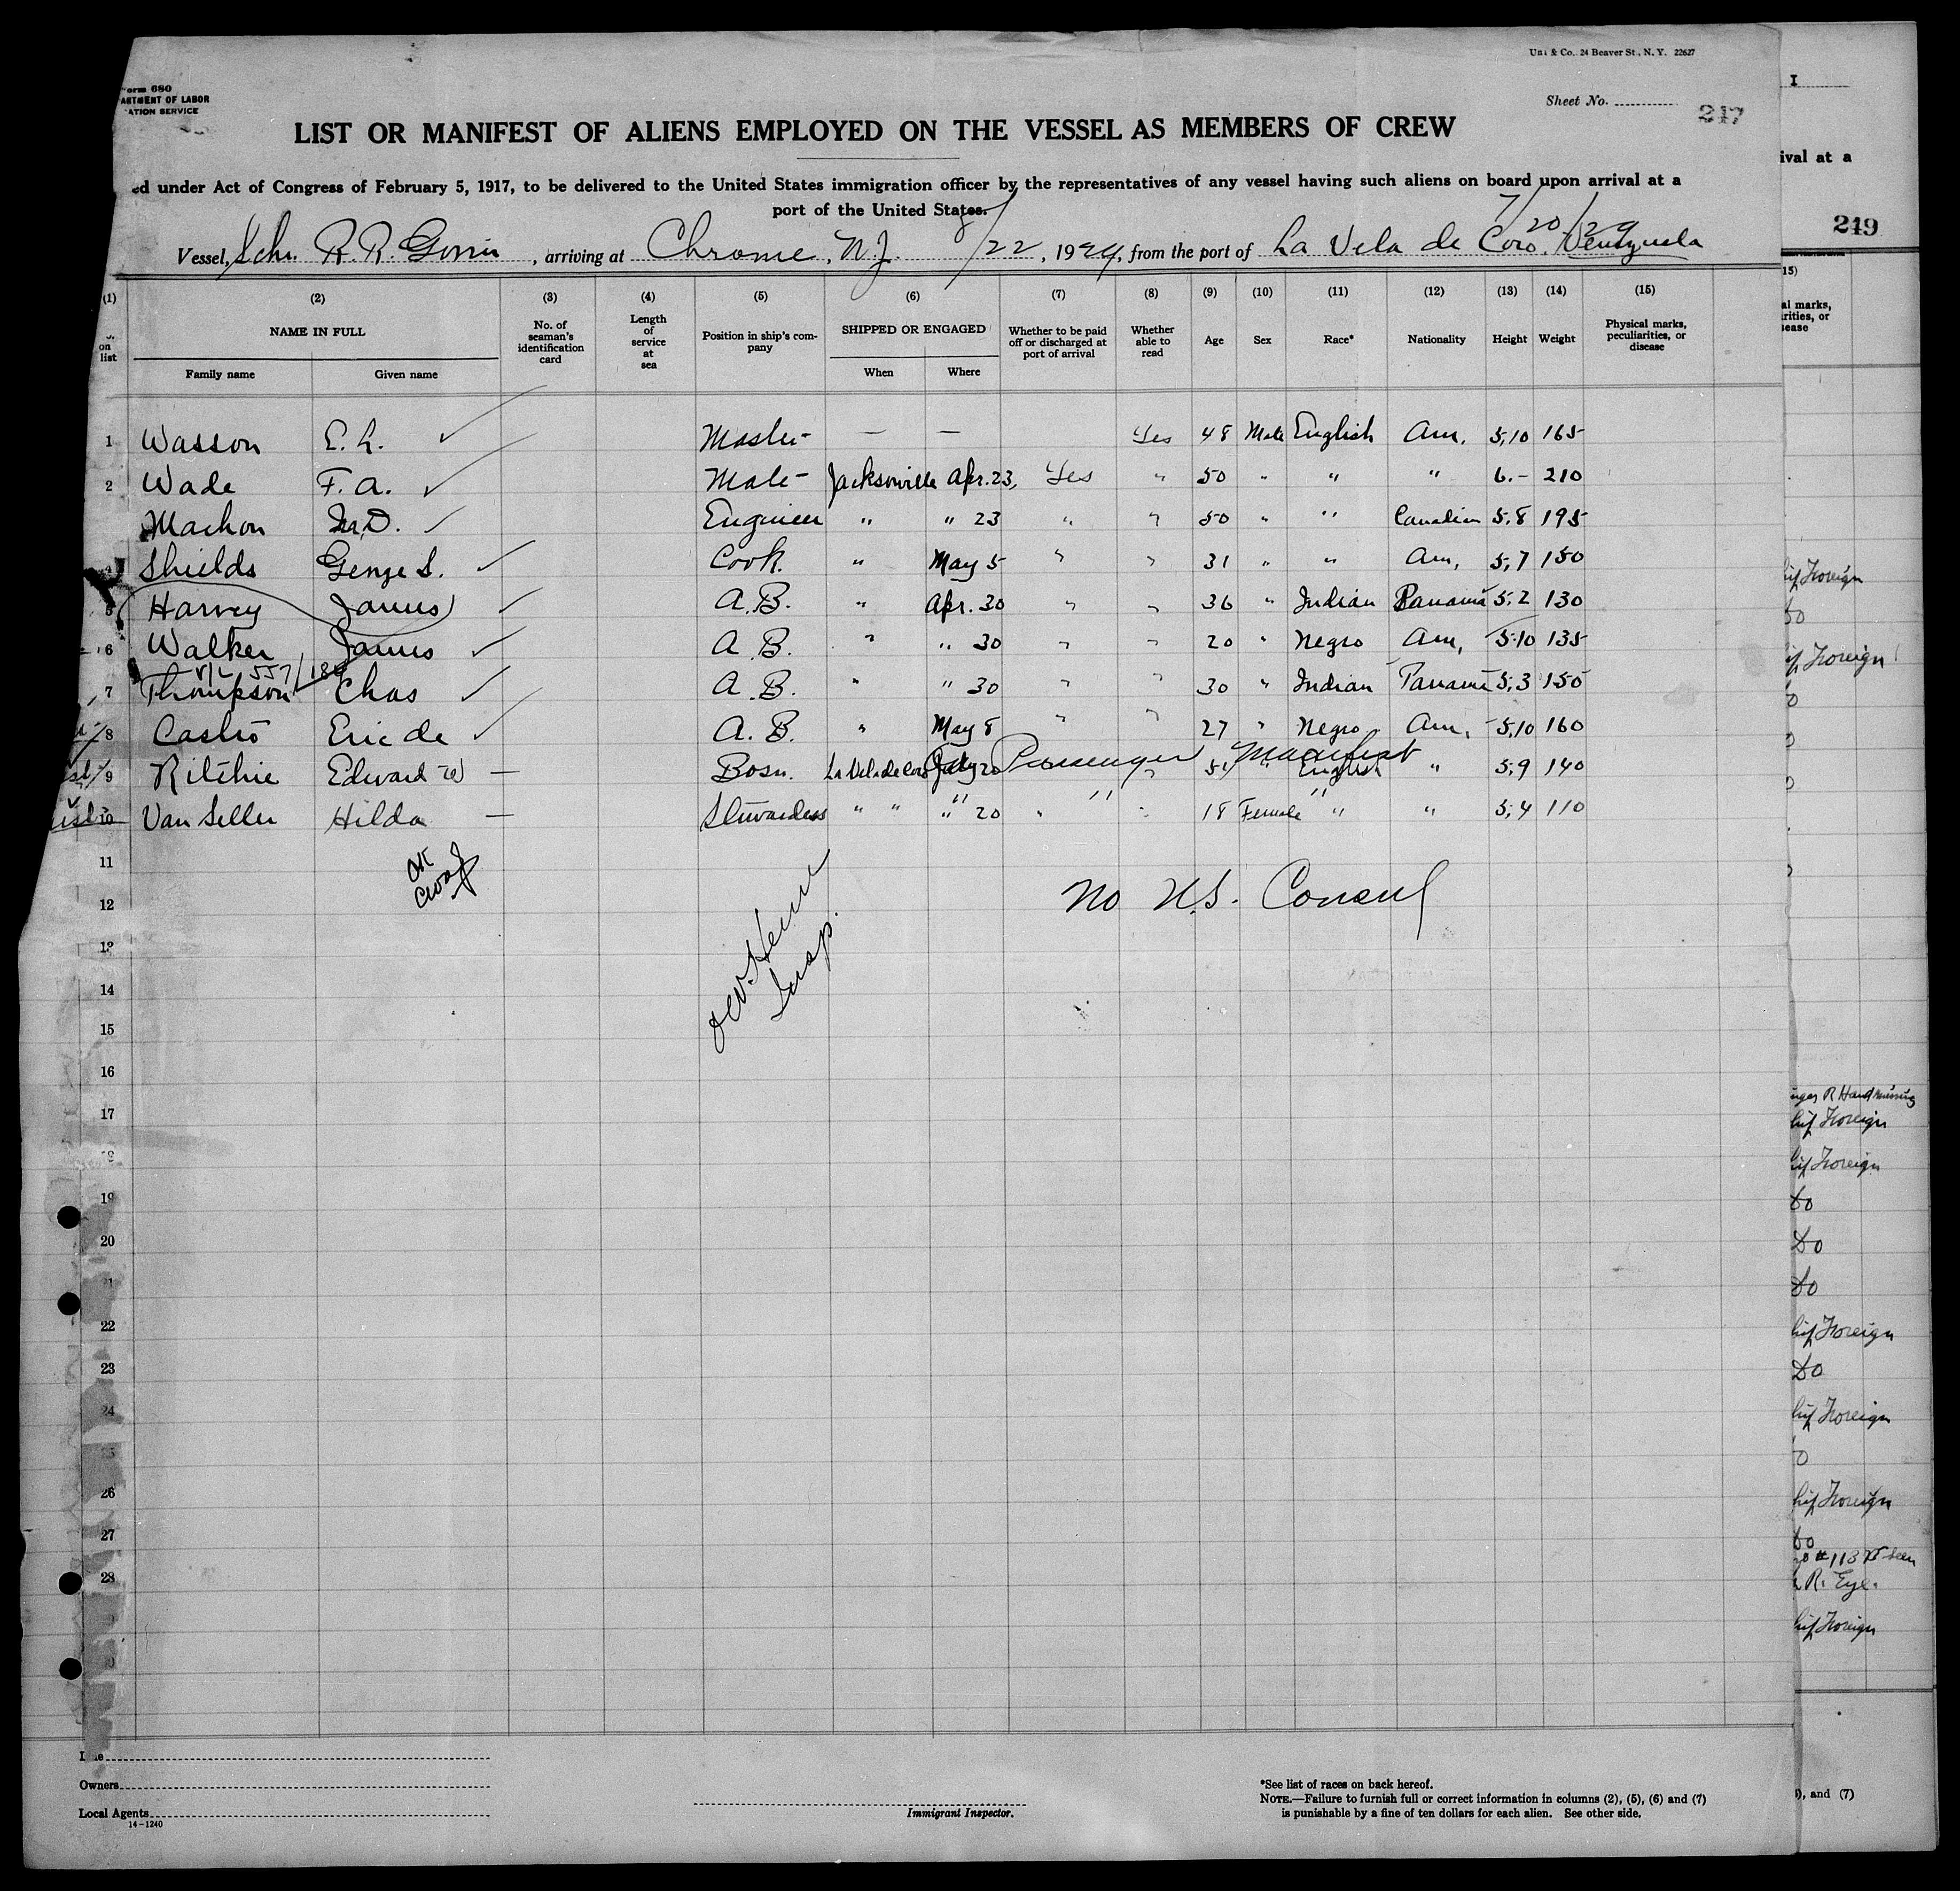 Uni & Co. 24 Beaver St., N. Y. 22627
orm 680
ARTMENT OF LABOR
ATION SERVICE
Sheet No.
217
LIST OR MANIFEST OF ALIENS EMPLOYED ON THE VESSEL AS MEMBERS OF CREW
ed under Act of Congress of February 5, 1917, to be delivered to the United States immigration officer by the representatives of any vessel having such aliens on board upon arrival at a
port of the United States.
7/20/29
Vessel, Schr. R.R. Govin, arriving at Chrome, N.J. 8/22, 1924, from the port of La Vela de Coro. Venezuela
(1) (2) (3) (4) (5) (6) (7) (8) (9) (10) (11) (12) (13) (14) (15)
on list NAME IN FULL Family name Given name No. of seaman's identification card Length of service at sea Position in ship's company SHIPPED OR ENGAGED When Where Whether to be paid off or discharged at port of arrival Whether able to read Age Sex Race* Nationality Height Weight Physical marks, peculiarities, or disease
1 Wasson E. L. Master — — Yes 48 Male English Am. 5,10 165
2 Wade F. A. Mate Jacksonville Apr. 23, Yes " 50 " " " 6.- 210
Machon Engineer " " 23 " " 50 " " Canadian 5,8 195
4 Shields George S. Cook. " May 5 " " 31 " " Am, 5,7 150
5 Harvey James A.B. " Apr. 30 " " 36 " Indian Panama 5,2 130
6 Walker James A.B. " " 30 " " 20 " Negro Am, 5.10 135
557/18
7 Thompson Chas A.B. " " 30 " " 30 " Indian Panama 5,3 150
8 Castro Eric de A.B. " May 8 " " 27 " Negro Am, 5,10 160
Passenger Manifest
9 Ritchie Edward W — Bosn. La Vela de Coro July 20 " 51 " English " 5,9 140
10 Van Seller Hilda — Stewardess " " " 20 " " 18 Female " " 5,4 110
OK
No U.S. Consul
Insp.
11
12
13
14
15
16
17
19
20
21
22
23
24
25
26
27
28
Owners
Local Agents
14-1240
Immigrant Inspector.
*See list of races on back hereof.
NOTE.—Failure to furnish full or correct information in columns (2), (5), (6) and (7)
is punishable by a fine of ten dollars for each alien. See other side.
I
ival at a
249
15)
al marks,
rities, or
sease
Foreign
Do
Foreign
R Hand missing
Foreign
Foreign
Do
Do
Do
Foreign
Do
Foreign
Foreign
Do
R. Eye.
Foreign
), and (7)